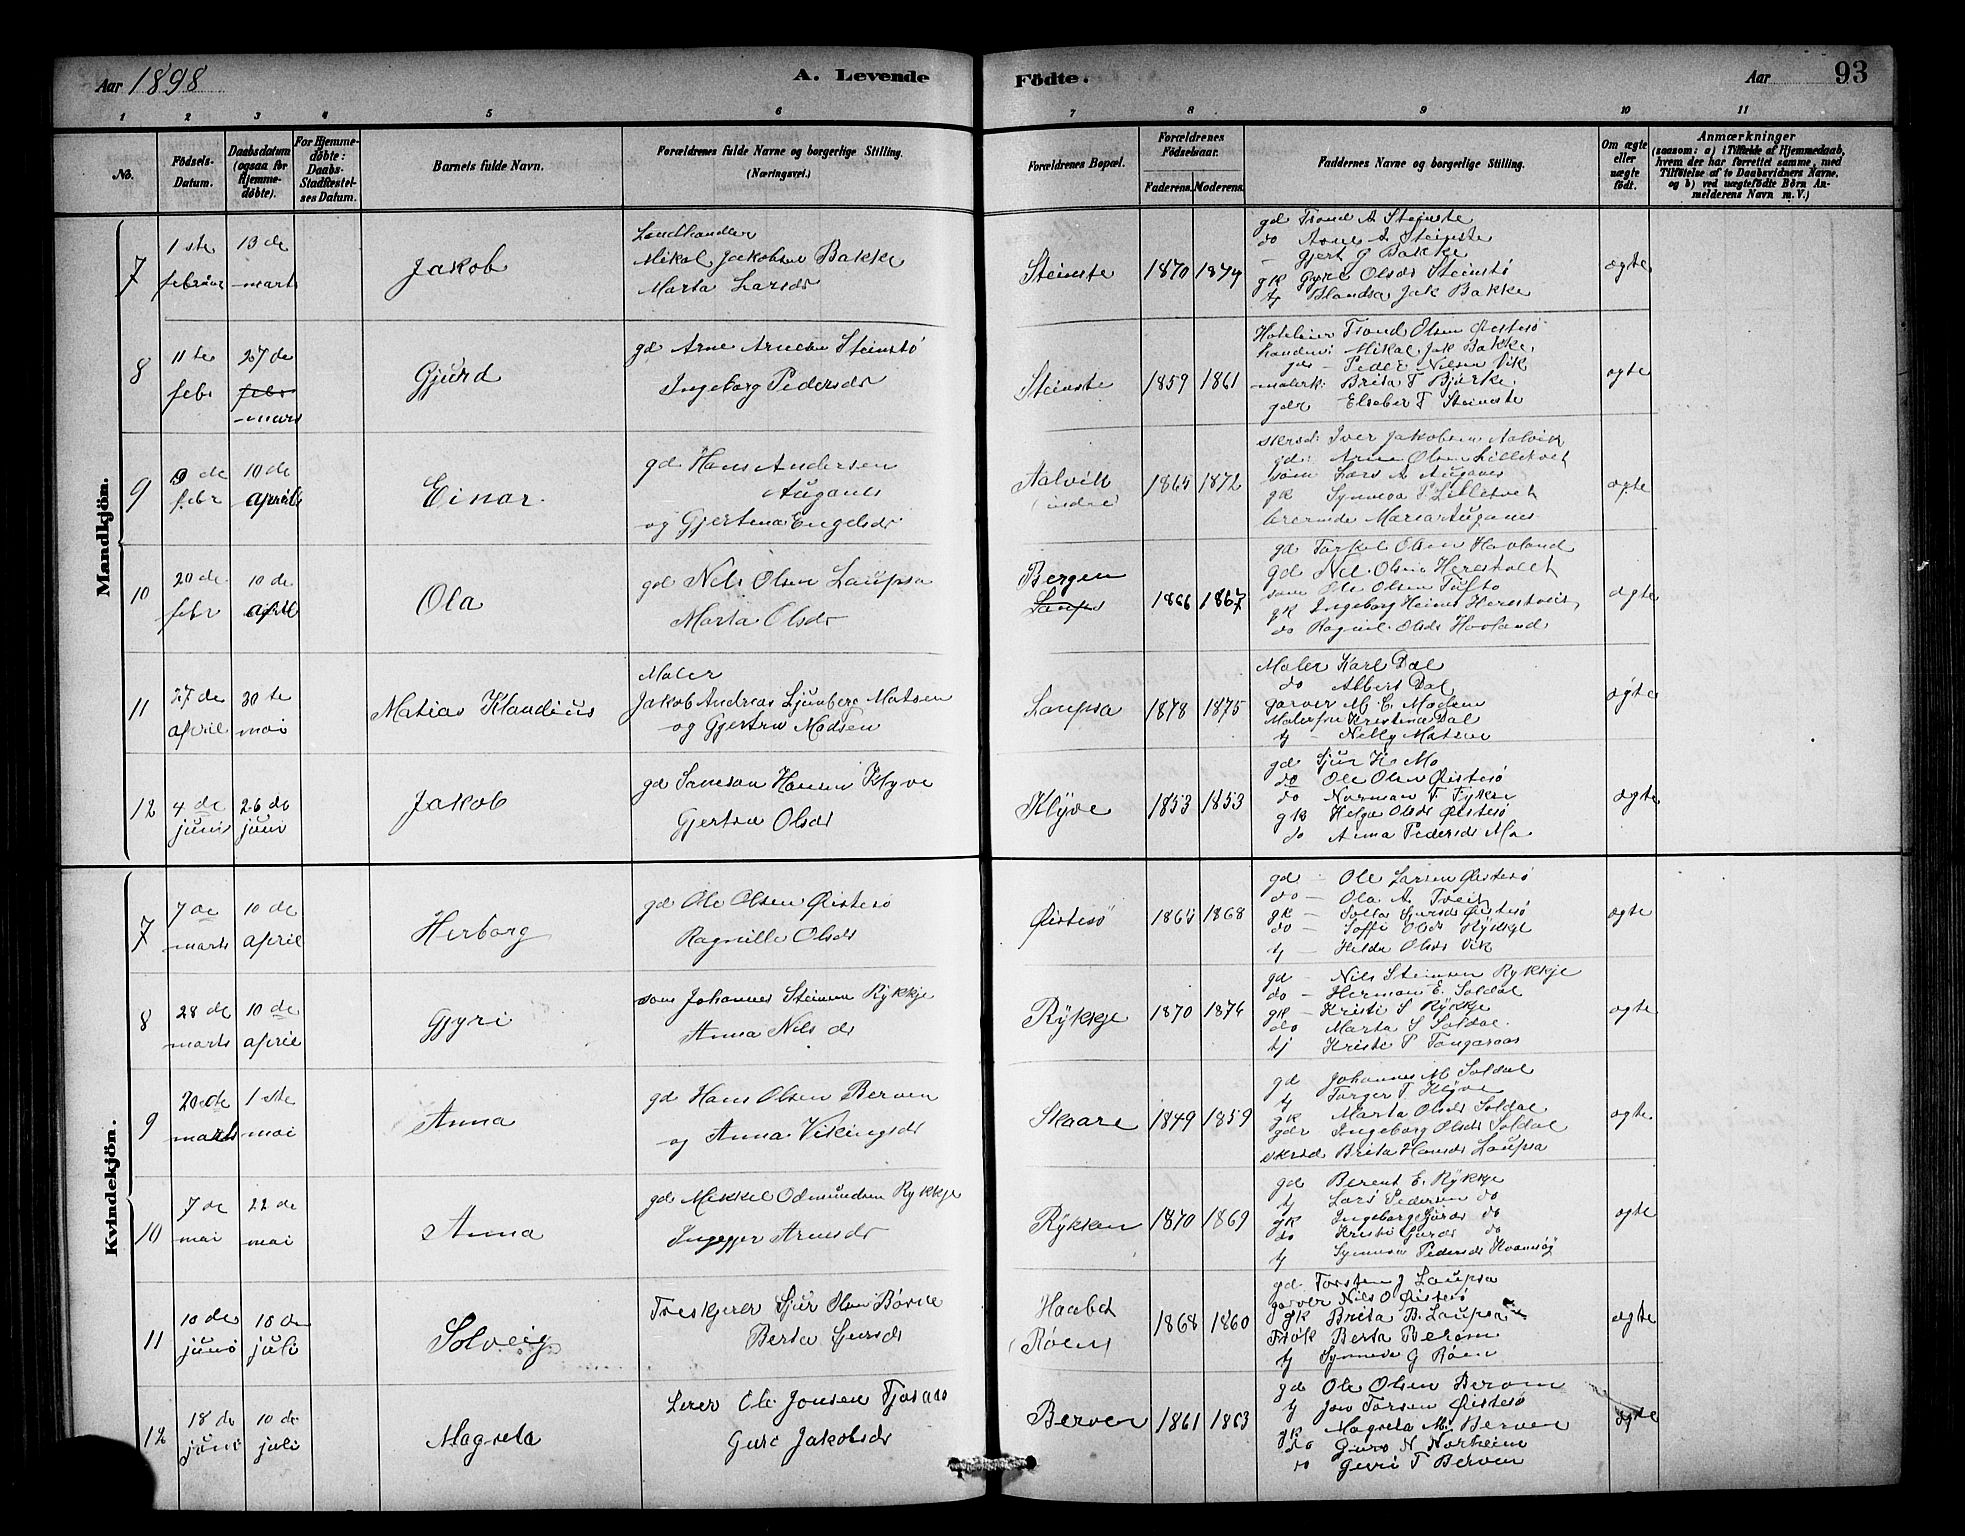 Aar 1898
A. Levende
Födte.
Aar
93
1 2 3 4 5 6 7 8 9 10 11
No.
Födsels-
Datum.
Daabsdatum
(ogsaa for
Hjemme-
döbte).
For Hjemme-
döbte:
Daabs-
Stadfæstel-
ses Datum.
Barnets fulde Navn.
Forældrenes fulde Navne og borgerlige Stilling.
(Næringsvei.)
Forældrenes Bopæl.
Forældrenes
Födselsaar.
Faderens. Moderens.
Faddernes Navne og borgerlige Stilling.
Om ægte
eller
uægte
födt.
Anmærkninger
(saasom: a) i Tilfælde af Hjemmedaab,
hvem der har forrettet samme, med
Tilföielse af to Daabsvidners Navne,
og b) ved uægtefödte Börn An-
melderens Navn m. V.)
Mandkjön.
7
1 ste
februar
13 de
marts
Jakob
Landhandler
Mikal Jakobsen Bakke
Marta Larsdr
Steinstø
1870 1874
gd Trond A Steinstø
do Arne A Steinstø
- Gjert G Bakke
gk Gyri Olsdr Steinstø
tj Jak Bakke
ægte
8
11 te
febr
27 de
febr
marts
Gjurd
gd Arne Arnesen Steinstø
Ingeborg Pedersdr
Steinstø
1859 1861
Hoteleier Trond Olsen Øistesø
Mikal Jak Bakke
gd - Peder Nilsen Vik
malerk: Brita T Bjørke
gdr Elseber T Steinstø
ægte
9
9 de
febr
10 de
april
Einar
gd Hans Andersen
Auganes
og Gjertina Engelsdr
Aalvik
(indre)
1865 1872
skrsd: Iver Jakobsen Aalvik
gd: Arne Olsen Lilletvet
søn: Lars A Auganes
gk Synneva T Lilletvet
Maria Auganes
ægte
10
20 de
febr
10 de
april
Ola
gd Nils Olsen Laupsa
Marta Olsdr
Bergen
Laupsa
1866 1867
gd Torkel Olsen Hovland
gd Nils Olsen Herestvedt
søn Ole Olsen Tufto
gk Ingeborg Herestveit
do Ragnil Olsdr Hovland
ægte
11
27 de
april
30 te
mai
Matias Klaudius
Maler
Jakob Andreas Ljunberg Matsen
og Gjertru Madsen
Laupsa
1878 1875
Maler Karl Dal
do Albert Dal
garver M. E. Madsen
Malerfru Kristina Dal
tj Nelly Matsen
ægte
12
4 de
juni
26 de
juni
Jakob
gd Samson Hansen Klyve
Gjertru Olsdr
Klyve
1853 1853
gd Sjur H Mo
do Ole Olsen Øistesø
do Norman T. Fykse
gk Helga Olsdr Øistesø
do Anna Pedersdr Mo
ægte
Kvindekjön.
7
7 de
marts
10 de
april
Herborg
gd Ole Olsen Øistesø
Ragnille Olsdr
Øistesø
1864 1868
gd - Ole Larsen Øistesø
do - Ola A. Tveit
gk - Solla Sjursdr Øistesø
do - Soffi Olsdr Rykkje
tj - Hilda Olsdr Vik
ægte
8
28 de
marts
10 de
april
Gjyri
søn Johannes Steinsen Rykkje
Anna Nilsdr
Rykkje
1870 1874
gd - Nils Steinsen Rykkje
do - Herman E. Soldal
gk - Kristi S Rykkje
do Marta S Soldal
tj Kristi P Tangeraas
ægte
9
20 de
marts
1 ste
mai
Anna
gd Hans Olsen Berven
og Anna Vikingsdr
Skaare
1849 1859
gd Johannes M Soldal
tj Torger T Klyve
gk Marta Olsdr Soldal
gdr Ingeborg Olsdr Soldal
skrsd Brita Hansdr Laupsa
ægte.
10
7 de
mai
22 de
mai
Anna
gd Mikkel Odmundsen Rykkje
Ingeger Arnesdr
Rykken
1870 1869
gd Berent E. Rykkje
tj Lars Pedersen do
gk Ingeborg Gjurdr do
do Kristi Gjurdr do
tj Synneva Pedersdr Kvamsøy
ægte
11
10 de
juni
10 de
juli
Solveig
Træskjerer Sjur Olsen Børve
Berta Gjursdr
(Røen)
1868 1860
gd. Torsten J Laupsa
garver Nils O Øistesø
gk Brita B. Laupsa
Berta Berven
tj Synneva G Røen
ægte
12
18 de
juni
10 de
juli
Magrela
Lærer Ole Jonsen Fjosaas
Guri Jakobsdr
Berven
1861 1863
gd Ole Olsen Berven
tj Jon Torsen Øistesø
gk Magrela M. Berven
do Guro N Norheim
do Guri T Berven
ægte